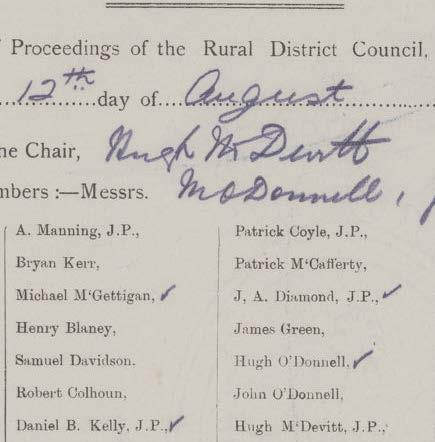 Proceedings of the Rural District Council,
12th day of August
Chair, Hugh McDevitt
Members :—Messrs. McDonnell,
A. Manning, J.P., Patrick Coyle, J.P.,
Bryan Kerr, Patrick M'Cafferty,
Michael M'Gettigan, ✓ J, A. Diamond, J.P., ✓
Henry Blaney, James Green,
Samuel Davidson. Hugh O'Donnell, ✓
Robert Colhoun, John O'Donnell,
Daniel B. Kelly, J.P., ✓ Hugh M'Devitt, J.P.,